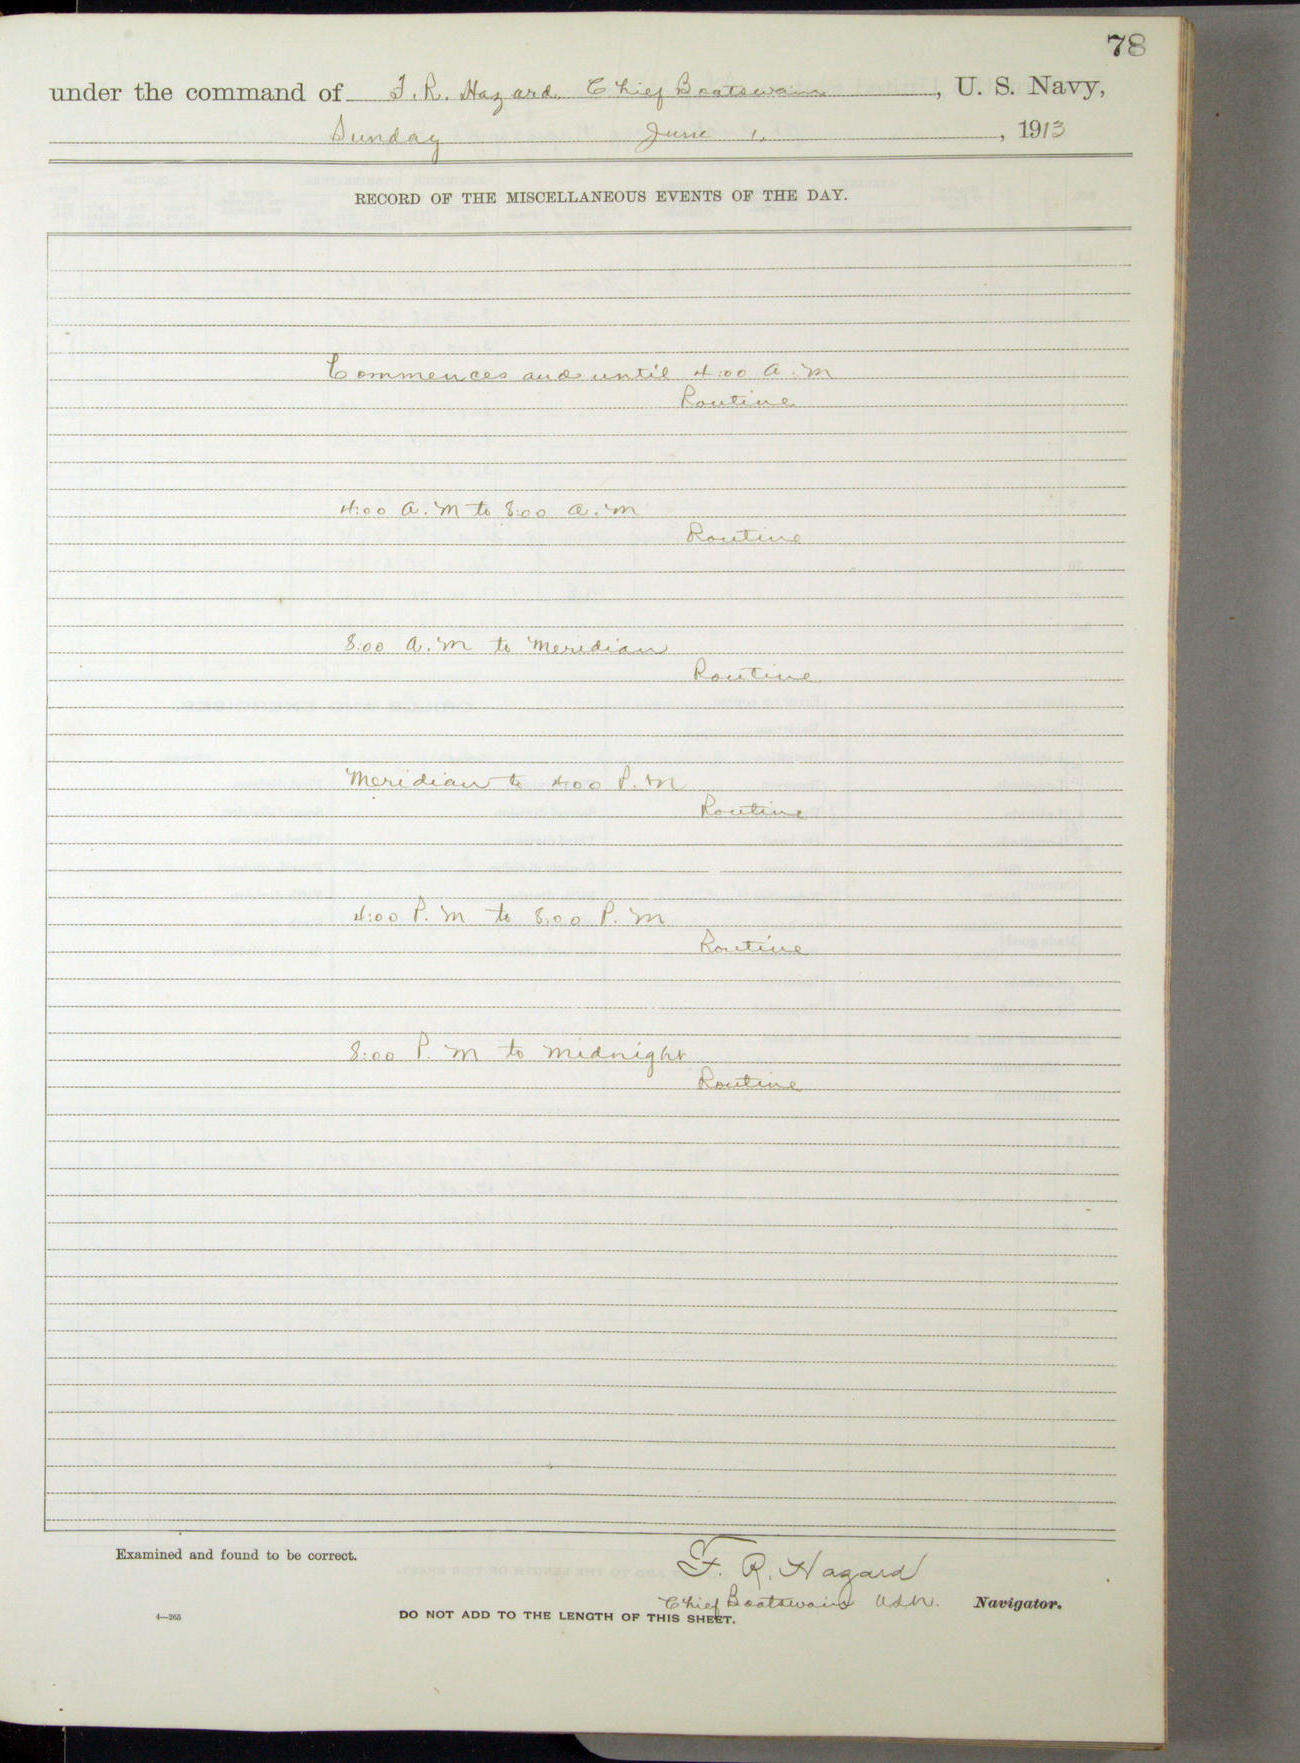 78
under the command of F. R. Hazard Chief Boatswain, U. S. Navy,
Sunday June 1., 1913
RECORD OF THE MISCELLANEOUS EVENTS OF THE DAY.
Commences and until 4:00 A.M
Routine
4:00 A.M to 8:00 A.M
Routine
8:00 A.M to Meridian
Routine
Meridian to 4:00 P.M
Routine
4:00 P.M to 8:00 P.M
Routine
8:00 P.M to Midnight
Routine
Examined and found to be correct.
F. R. Hazard
Chief Boatswain U.S.N. Navigator.
4—265 DO NOT ADD TO THE LENGTH OF THIS SHEET.